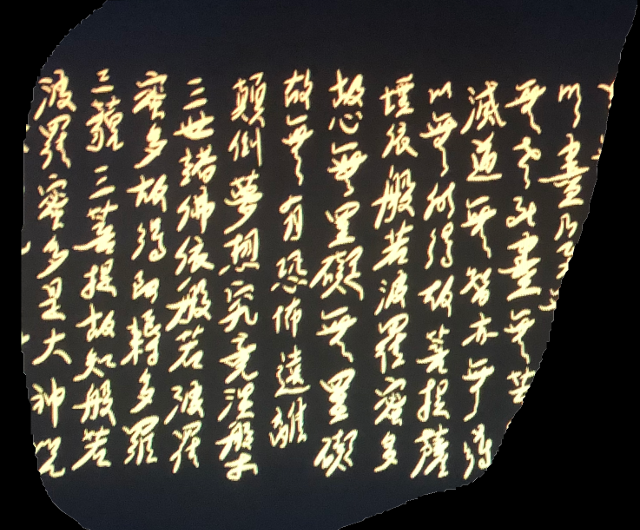 明盡乃至
無老死盡無苦
滅道無智亦無得
以無所得故菩提薩
埵依般若波羅蜜多
故心無罣礙無罣礙
故無有恐怖遠離
顛倒夢想究竟涅槃
三世諸佛依般若波羅
蜜多故得阿耨多羅
三藐三菩提故知般若
波羅蜜多是大神咒